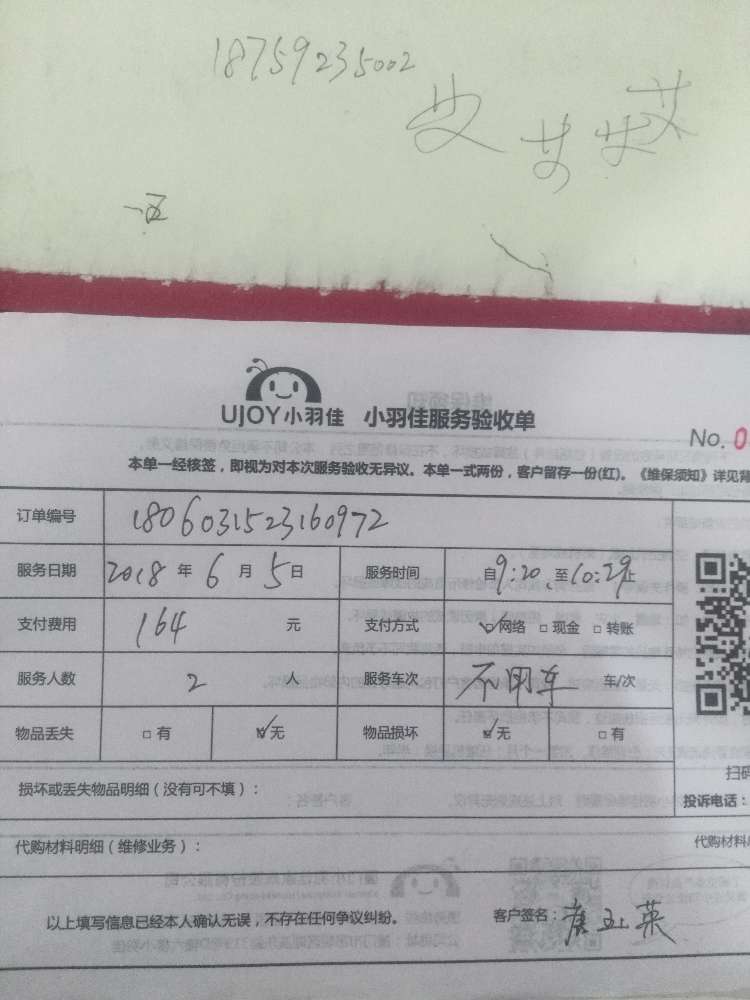 18759235002
UJOY小羽佳 小羽佳服务验收单
No. 0
本单一经核签，即视为对本次服务验收无异议。本单一式两份，客户留存一份(红)。《维保须知》详见背
订单编号 1806031523160972
服务日期 2018 年 6 月 5 日 服务时间 自9:20 至10:29止
支付费用 164 元 支付方式 ☑网络 □现金 □转账
服务人数 2 人 服务车次 不用车 车/次
物品丢失 □有 ☑无 物品损坏 ☑无 □有
扫码
损坏或丢失物品明细（没有可不填）：
投诉电话：
代购材料明细（维修业务）：
代购材料
以上填写信息已经本人确认无误，不存在任何争议纠纷。 客户签名：